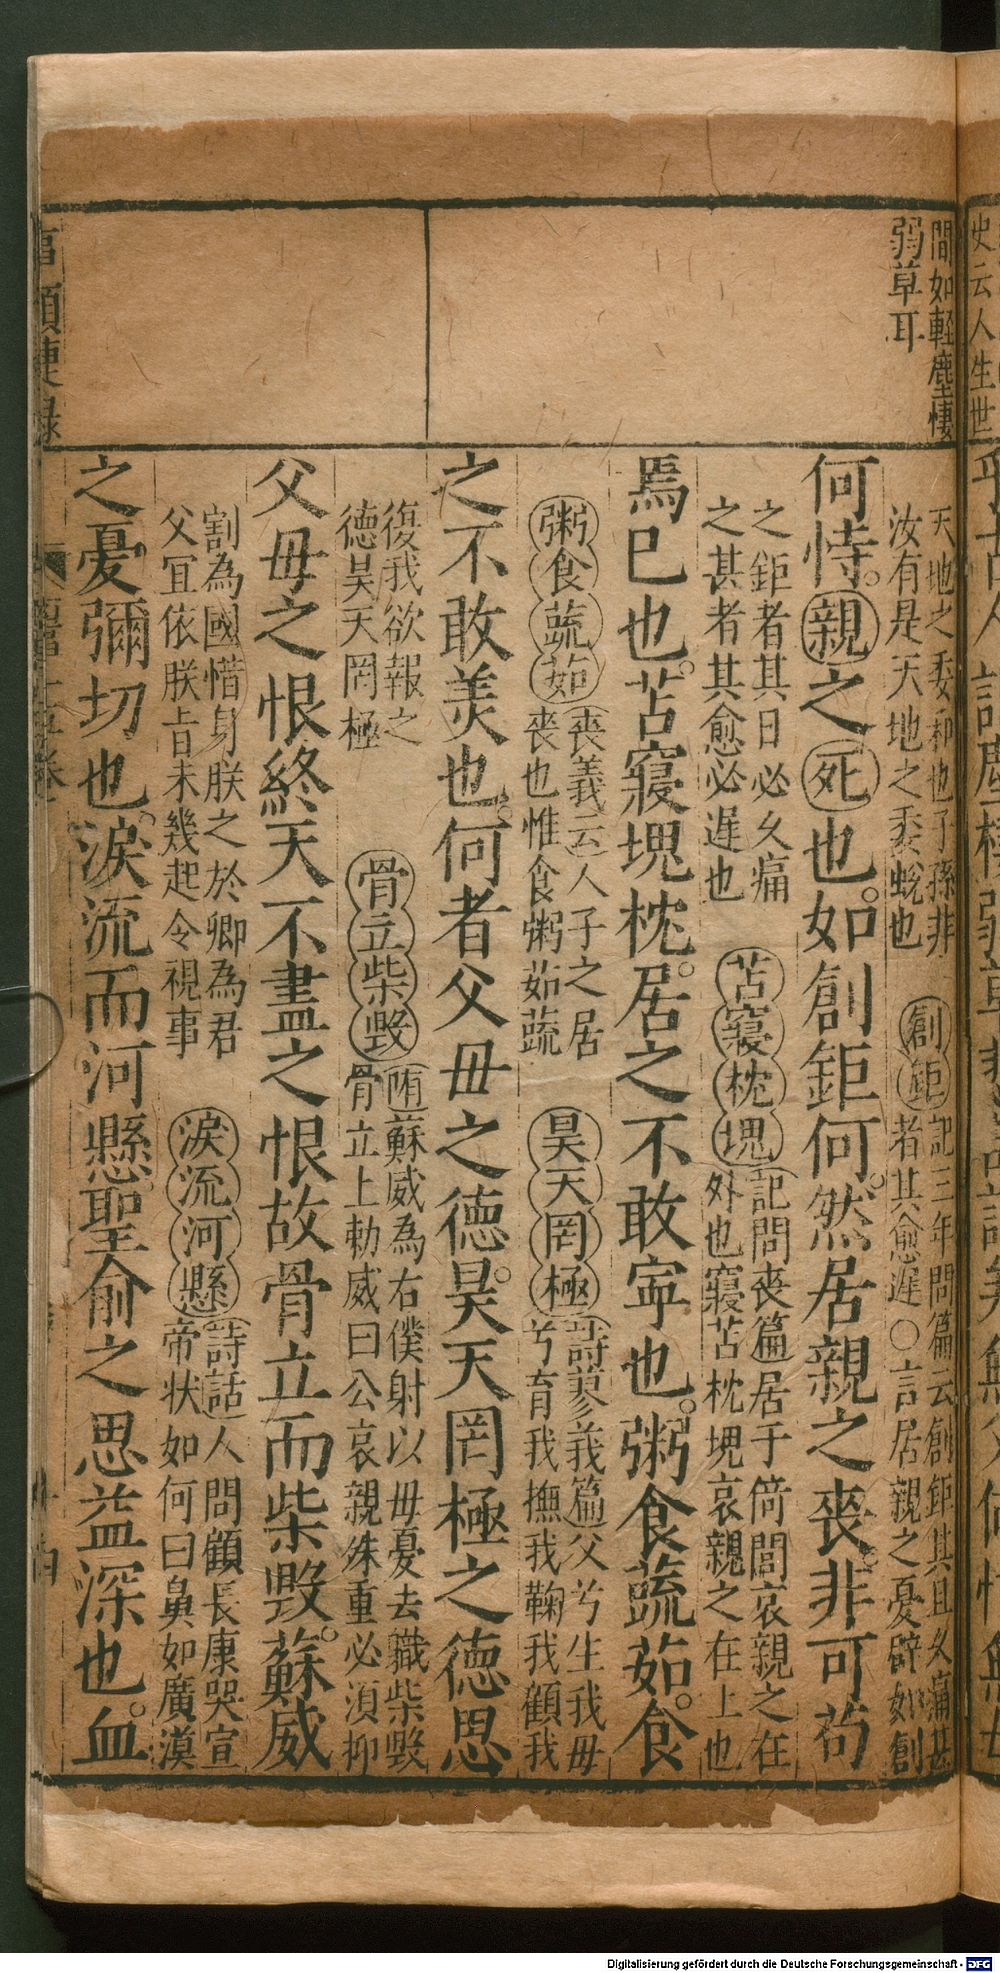 史云人生世
間如軽塵悽
弱草耳
天地之委和也子孫非
汝有是天地之委蛻也
創鉅
記三年問篇云創鉅其日乆痛甚
者其愈遲〇言居親之憂辟如創
何恃親之死也如創鉅何然居親之喪非可苟
之鉅者其日必乆痛
之甚者其愈必遅也
苫寢枕塊
記問喪篇居于倚閭哀親之在
外也寢苫枕塊哀親之在上也
焉已也苫寢塊枕居之不敢寕也粥食蔬茹食
粥食蔬茹
喪義云人子之居
喪也惟食粥茹蔬
昊天罔極
詩蓼莪篇父兮生我毋
兮育我撫我鞠我顧我
之不敢美也何者父毋之德昊天罔極之德思
復我欲報之
德昊天罔極
骨立柴毀
隋蘇威為右僕射以毋憂去職柴毀
骨立上勅威曰公哀親殊重必湏抑
父毋之恨終天不盡之恨故骨立而柴毀蘇威
割為國惜身朕之於卿為君
父冝依朕旨未幾起令視事
淚流河懸
詩話人問顧長康哭宣
帝状如何曰鼻如廣漠
之憂彌切也淚流而河懸聖俞之思益深也血
Digitalisierung gefördert durch die Deutsche Forschungsgemeinschaft - DFG